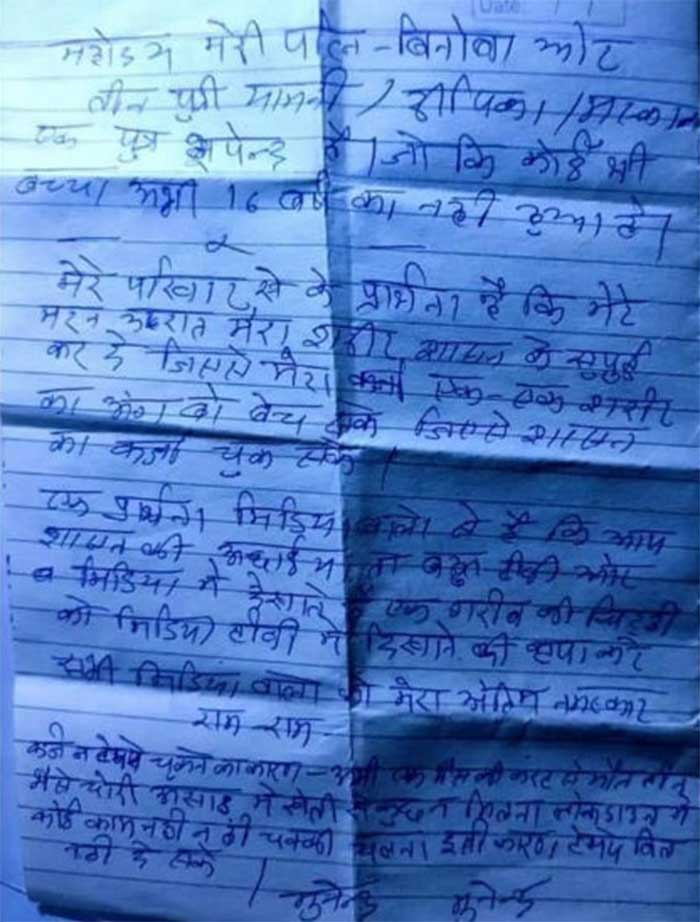 Date: / /
महोदय मेरी पत्नि - बिनोबा ओर
तीन पुत्री मामनी / दीपिका / मस्कान
एक पुत्र भूपेन्द्र है। जो कि कोई भी
बच्चा अभी 16 वर्ष का नही हुआ है।
मेरे परिवार से के प्रार्थना है कि मेरे
मरने मेरा शरीर शासन के सुपुर्द
कर दे जिससे मेरा कर्जा एक-एक शरीर
का अंग को बेच सके जिससे शासन
का कर्जा चुक सके।
एक प्रार्थना मिडिया वालो से है कि आप
शासन की अच्छाईया तो बहुत टीवी ओर
व मिडिया मे देखाते है एक गरीब की चिट्ठी
को मिडिया टीवी मे दिखाने की कृपा करे
सभी मिडिया वालो को मेरा अंतिम नमस्कार
राम-राम-
कर्ज न टेमपे चुकने का कारण - अभी एक भैस की करंट से मौत तीन
भैसे चोरी असाड मे खेती से कुछ न मिलना लोकडाउन मे
कोई काम नही न ही चक्की चलना इसी कारण टेमपे बिल
नही दे सके।
मुनेन्द्र मुनेन्द्र